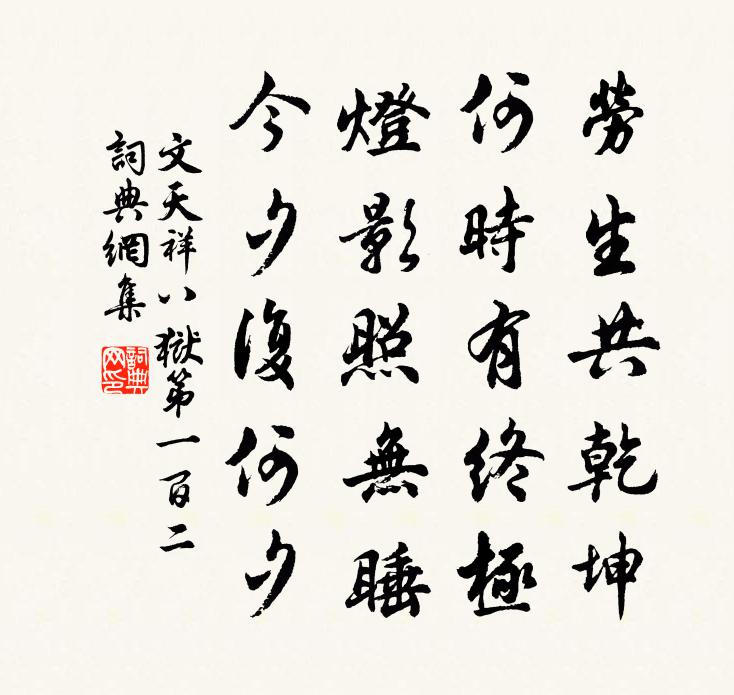 勞生共乾坤
何時有終極
燈影照無睡
今夕復何夕
文天祥八獄第一百二
詞典網集
詞典网印